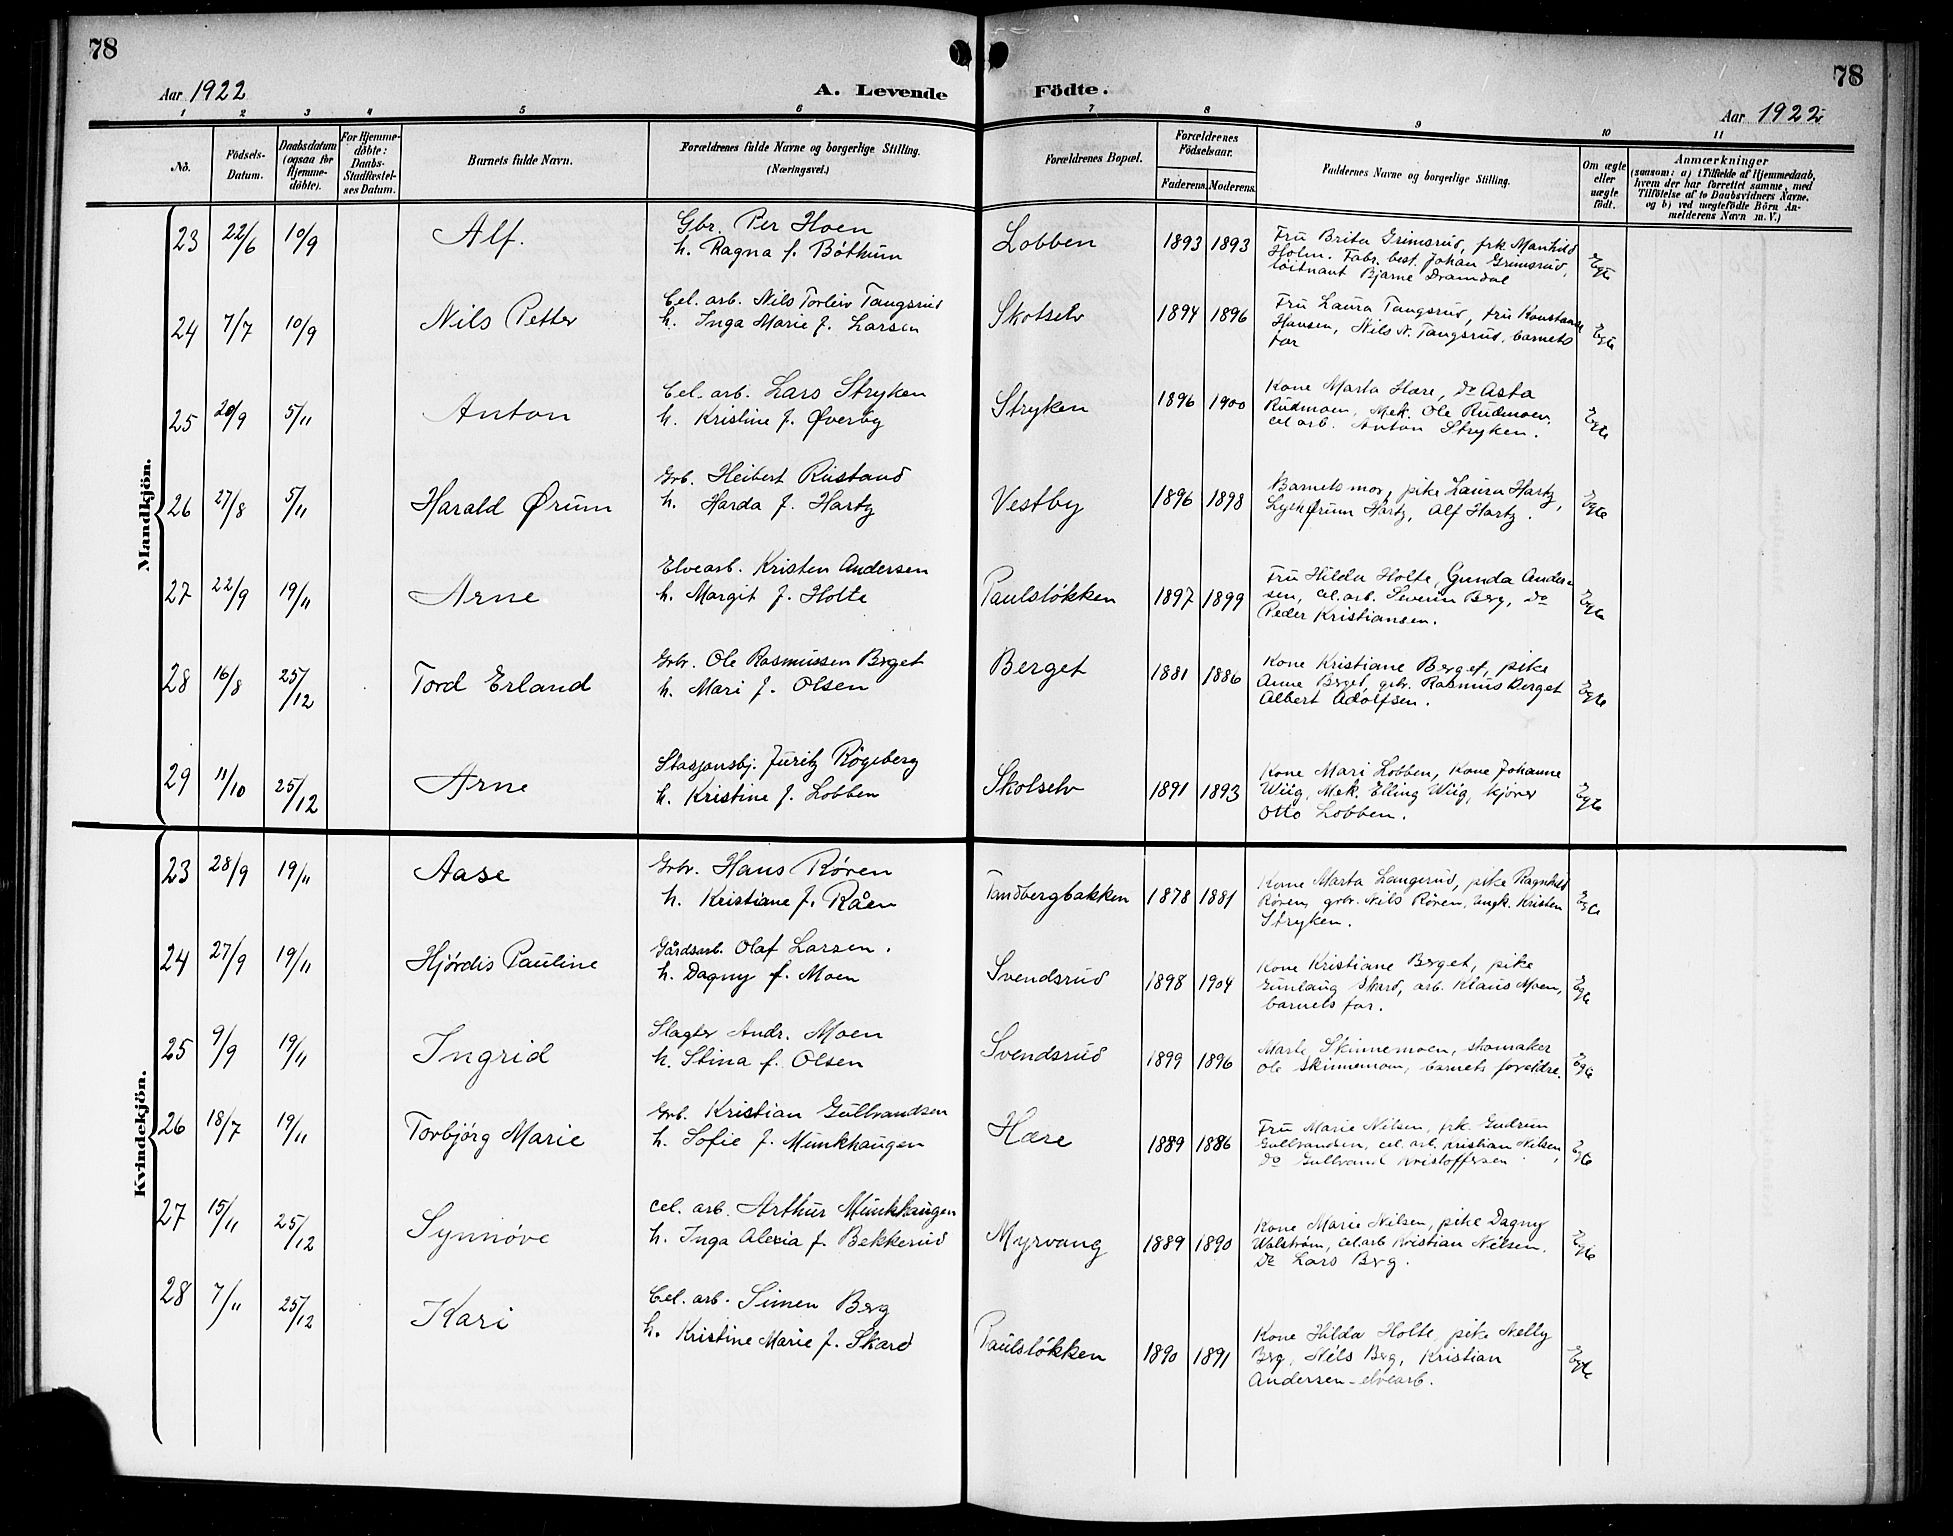 78
78
Aar 1922
A. Levende
Födte.
Aar 1922
1 2 3 4 5 6 7 8 9 10 11
No.
Födsels-
Datum.
Daabsdatum
(ogsaa for
Hjemme-
døbte).
For Hjemme-
døbte:
Daabs-
Stadfæstel-
ses Datum.
Barnets fulde Navn.
Forældrenes fulde Navne og borgerlige Stilling.
(Næringsvei.)
Forældrenes Bopæl.
Forældrenes
Födselsaar.
Faderens. Moderens.
Faddernes Navne og borgerlige Stilling.
Om ægte
eller
uægte
født.
Anmærkninger
(saasom: a) i Tilfælde af Hjemmedaab,
hvem der har forrettet samme, med
Tilföielse af to Daabsvidners Navne.
og b) ved uægtefödte Börn An-
melderens Navn m. V.)
Mandkjön.
23 22/6 10/9 Alf.
Gbr. Per Hoen
h. Ragna f. Bøthum
Lobben 1893 1893
Fru Brita Grimsrud, frk. Manhild
Holm. Fabr. best. Johan Grimsrud,
løitnant Bjarne Dramdal
Egte
24 7/7 10/9 Nils Petter
Cel. arb. Nils Torleiv Tangsrud
h. Inga Marie f. Larsen
Skotselv 1894 1896
Fru Laura Tangsrud, fru Konstanse
Hansen, Nils N. Tangsrud, barnets
far
Egte
25 20/9 5/11 Anton
Cel. arb. Lars Stryken
h. Kristine f. Øverby
Stryken 1896 1900
Kone Marta Hære, do Asta
Rudmoen, Mek. Ole Rudmoen,
cel. arb. Anton Stryken.
Egte
26 27/8 5/11 Harald Ørum
Grb. Heibert Rustand
h. Harda f. Hartz
Vestby 1896 1898
Barnets mor, pike Laura Hartz,
Ørum Hartz, Alf Hartz.
Egte
27 22/9 19/11 Arne
Elvearb. Kristen Andersen
h. Margit f. Holte
Paulsløkken 1897 1899
Fru Hilda Holte, Gunda Ander-
sen, cel. arb. Severin Berg, do
Peder Kristiansen.
Egte
28 16/8 25/12 Tord Erland
Grbr. Ole Rasmussen Berget
h. Mari f. Olsen
Berget 1881 1886
Kone Kristiane Berget, pike
Anne Berget, gbr. Rasmus Berget
Albert Adolfsen.
Egte
29 11/10 25/12 Arne
Stasjonsbj. Juritz Røgeberg
h. Kristine f. Lobben
Skotselv 1891 1893
Kone Mari Lobben, Kone Johanne
Wiig, Mek. Elling Wiig, kjører
Otto Lobben.
Egte
Kvindekjön.
23 28/9 19/11 Aase
Grbr. Hans Røren
h. Kristiane f. Råen
Tandbergbakken 1878 1881
Kone Marta Langerud, pike Ragnhild
Røren, grbr. Nils Røren, ungk. Kristen
Stryken.
Egte
24 27/9 19/11 Hjørdis Pauline
Gårdsarb. Olaf Larsen.
h. Dagny f. Moen
Svendsrud 1898 1904
Kone Kristiane Berget, pike
Gunlaug Skard, arb. Klaus Moen,
barnets far.
Egte
25 9/9 19/11 Ingrid
Slagter Andr. Moen
h. Stina f. Olsen
Svendsrud 1899 1896
Skinnemoen, skomaker
Ole Skinnemoen, barnets foreldre.
Egte
26 18/7 19/11 Torbjørg Marie
Grb. Kristian Gulbrandsen
h. Sofie f. Munkhaugen
Hære 1889 1886
Fru Marie Nilsen, frk. Gudrun
Gulbrandsen, cel. arb. Kristian Nilsen,
do Gulbrand Kristoffersen
Egte
27 15/11 25/12 Synnøve
Cel. arb. Arthur Munkhaugen
h. Inga Alexia f. Bekkerud
Myrvang 1889 1890
Kone Marie Nilsen, pike Dagny
Walstrøm, cel. arb Kristian Nilsen.
Do Lars Berg.
Egte
28 7/11 25/12 Kari
Cel. arb. Simen Berg
h. Kristine Marie f. Skard
Paulsløkken 1890 1891
Kone Hilda Holte, pike Nelly
Berg, Nils Berg, Kristian
Andersen - elvearb.
Egte